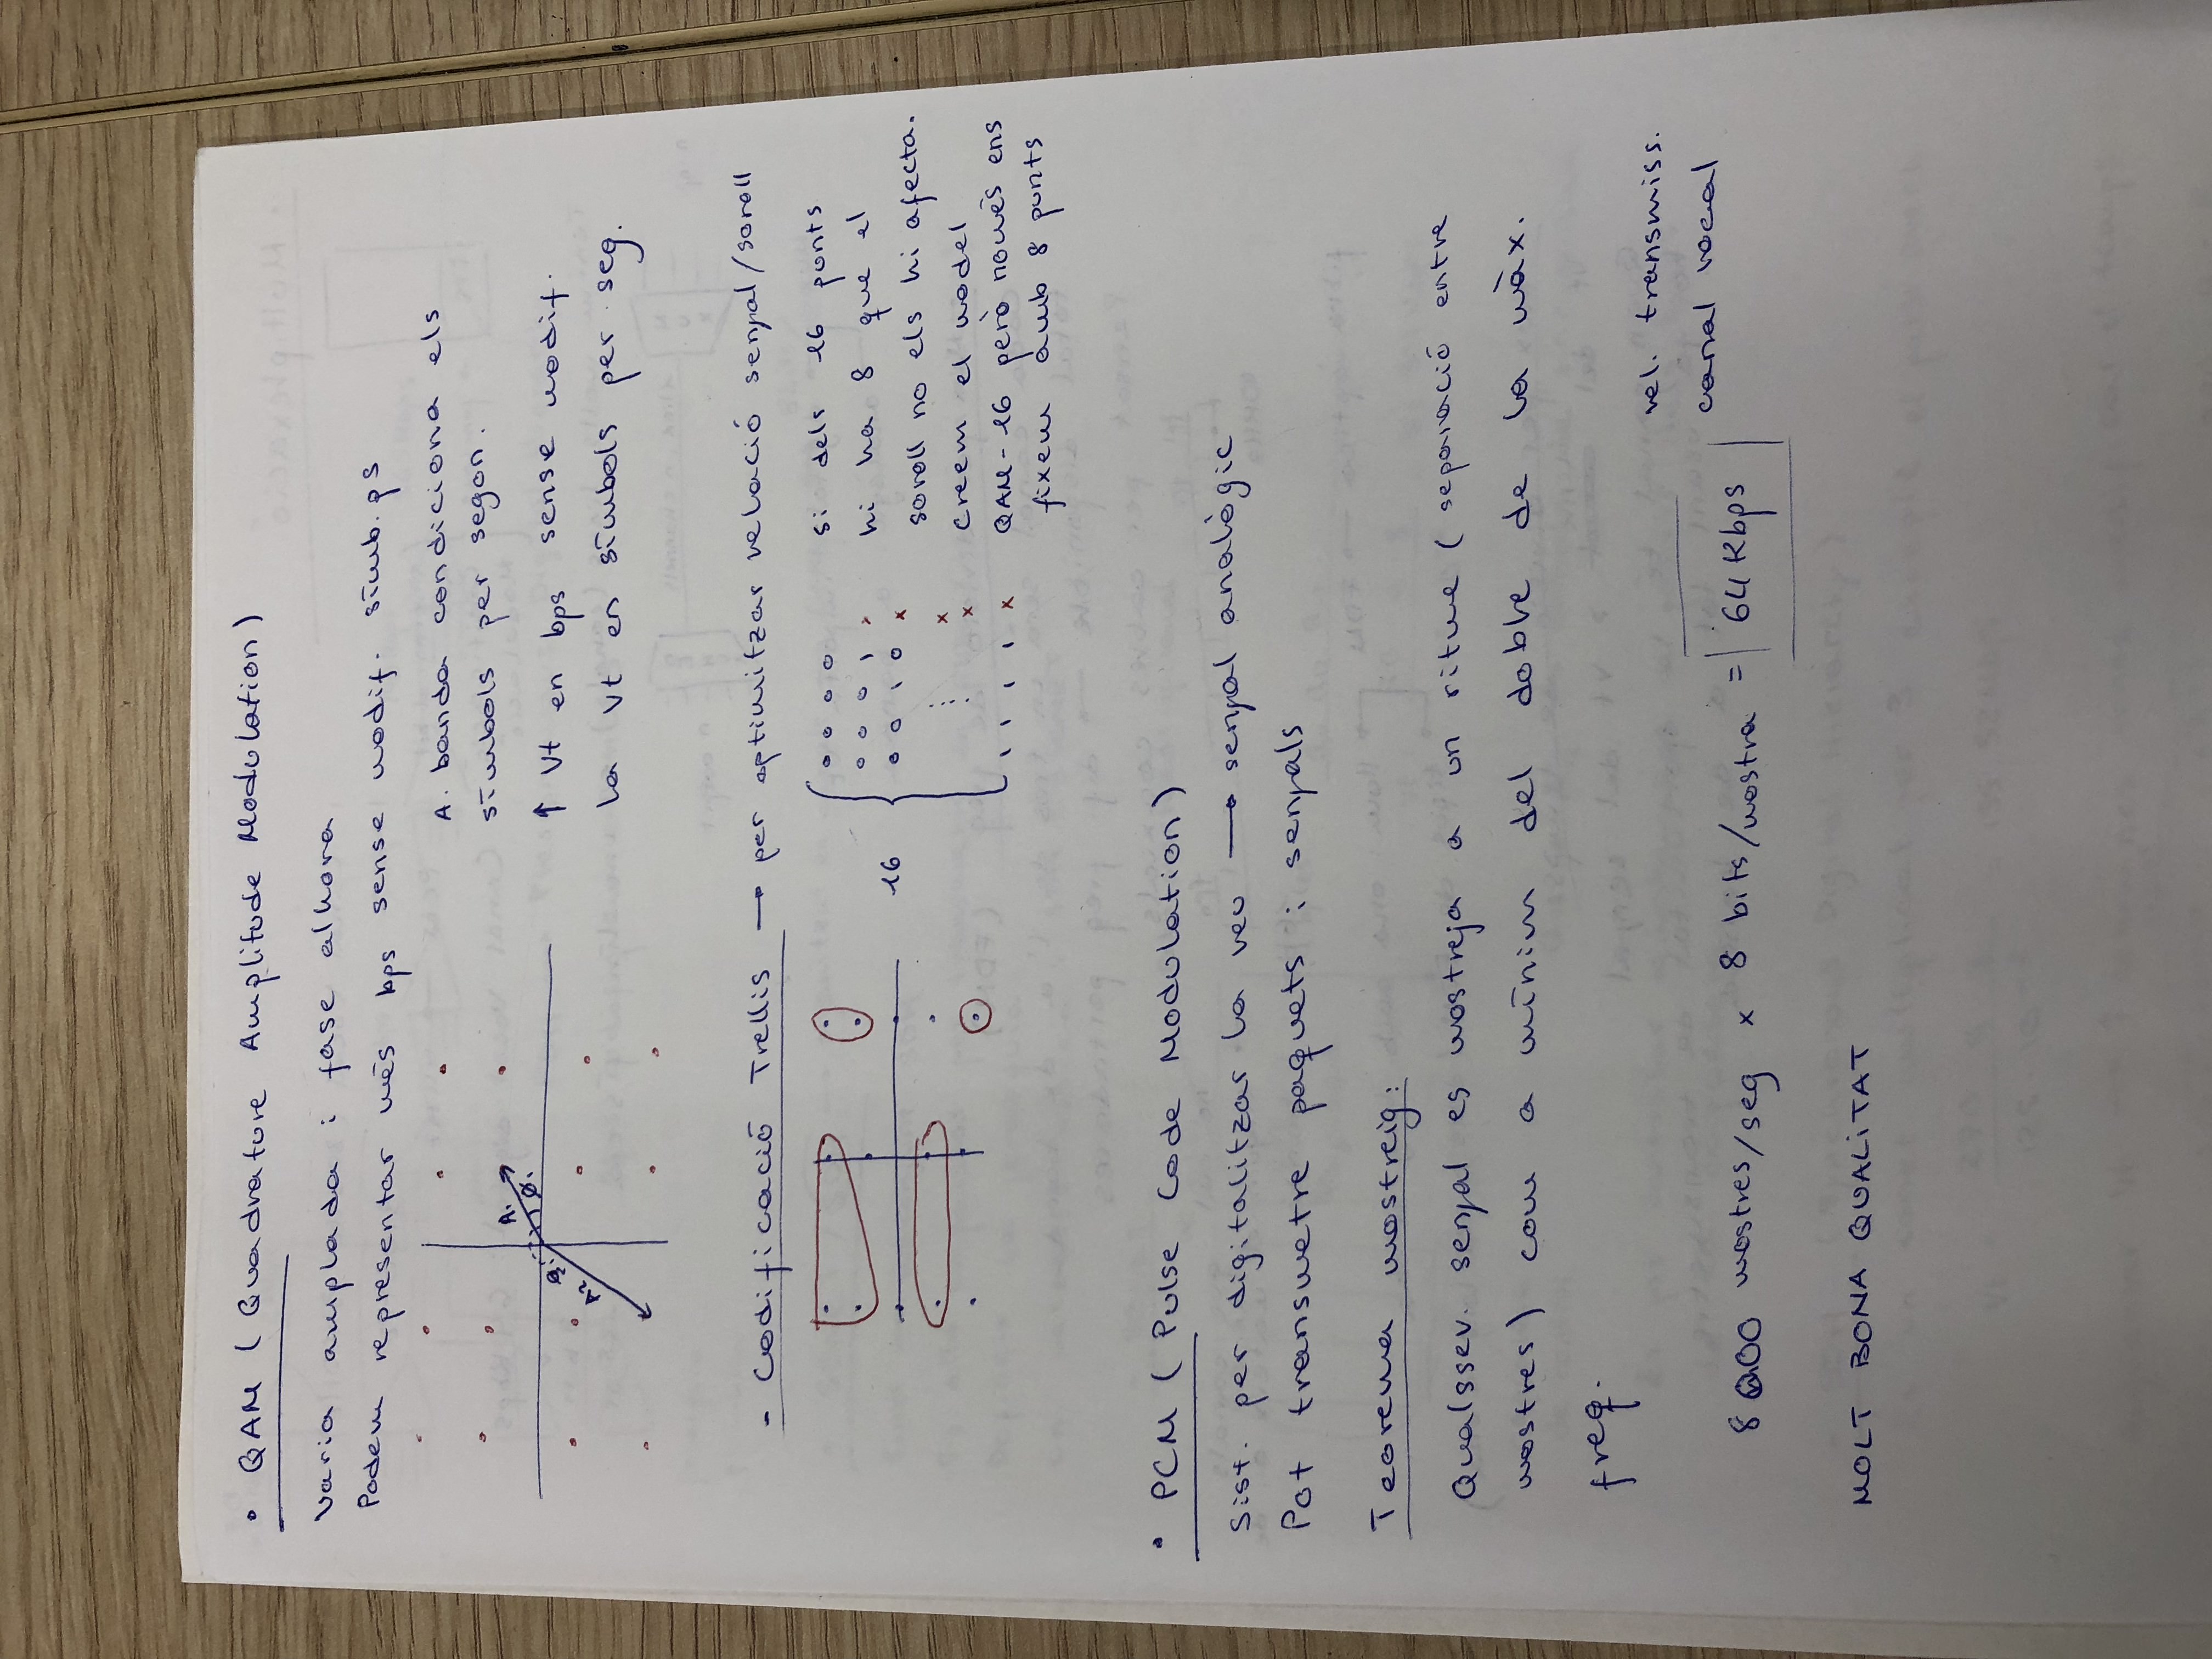 • QAM ( Quadrature Amplitude Modulation )
Varia amplada i fase alhora
Podem representar més bps sense modif. símb. ps
A. banda condiciona els
símbols per segon.
↑ Vt en bps sense modif.
la Vt en símbols per seg.
A₁ Ø₁
A₂
- Codificació Trellis → per optimitzar relació senyal/soroll
16
0 0 0 0
0 0 0 1 x
0 0 1 0 x
⋮ x
x
1 1 1 1 x
si dels 16 punts
hi ha 8 que el
soroll no els hi afecta.
creem el model
QAM-16 però només ens
fixem amb 8 punts
• PCM ( Pulse Code Modulation )
Sist. per digitalitzar la veu → senyal analògic
Pot transmetre paquets i senyals
Teorema mostreig:
Qualssev. senyal es mostreja a un ritme ( separació entre
mostres ) com a mínim del doble de la màx.
freq.
8000 mostres/seg x 8 bits/mostra = 64 Kbps
vel. transmiss.
canal vocal
MOLT BONA QUALITAT